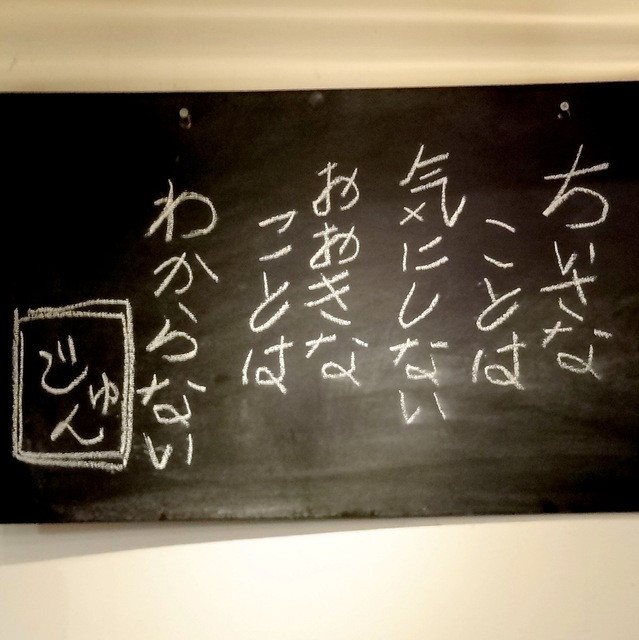 ちいさな
ことは
気にしない
おおきな
ことは
わからない
じゅん